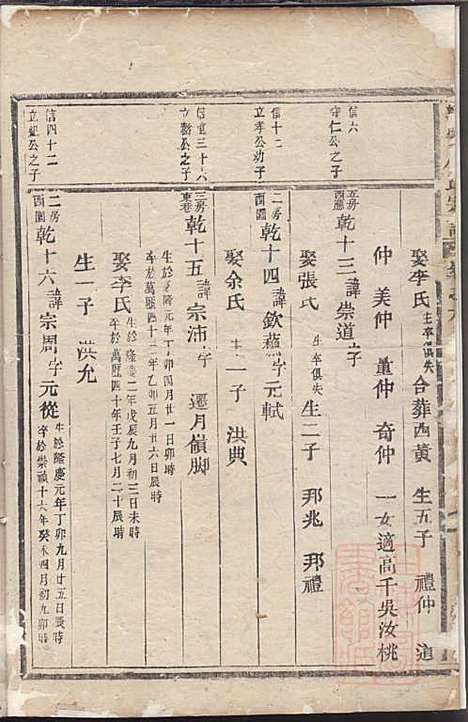 娶李氏 生卒俱失 合葬西黃 生五子 禮仲 道
仲 美仲 董仲 奇仲 一女適高千吳汝桃
信六
守仁公之子
五房
西廳 乾十三 諱崇道 字
娶張氏 生卒俱失 生二子 邦兆 邦禮
信十二
立孝公幼子
二房
西園 乾十四 諱欽 字元軾
娶余氏 生一子 洪典
信三十六
立公之子
三房
東巷 乾十五 諱宗沛 字 遷月嶺脚
生於隆慶元年丁卯四月廿一日卯時
卒於萬曆四十三年乙卯五月廿六日辰時
娶李氏 生於隆慶二年戊辰九月初三日未時
卒於萬曆四十年壬子七月二十辰時
生一子 洪允
信四十二
立祖公之子
二房
西園 乾十六 諱宗周 字元從
生於隆慶元年丁卯九月廿五日辰時
卒於崇禎十六年癸未四月初九卯時